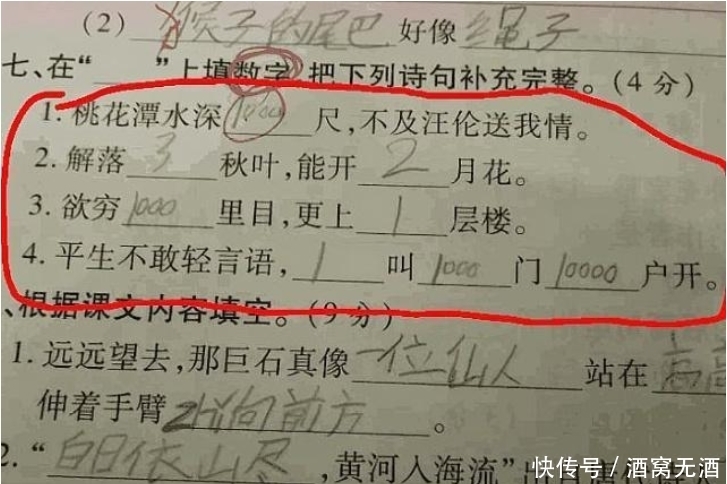 (2) 猴子的尾巴 好像 绳子
七、在“____”上填数字,把下列诗句补充完整。(4分)
1. 桃花潭水深 1000 尺,不及汪伦送我情。
2. 解落 3 秋叶,能开 2 月花。
3. 欲穷 1000 里目,更上 1 层楼。
4. 平生不敢轻言语, 1 叫 1000 门 10000 户开。
、根据课文内容填空。(9分)
1. 远远望去,那巨石真像 一位仙人 站在 高高
伸着手臂 指向前方 。
2. “ 白日依山尽 ,黄河入海流”
快传号 / 酒窝无酒